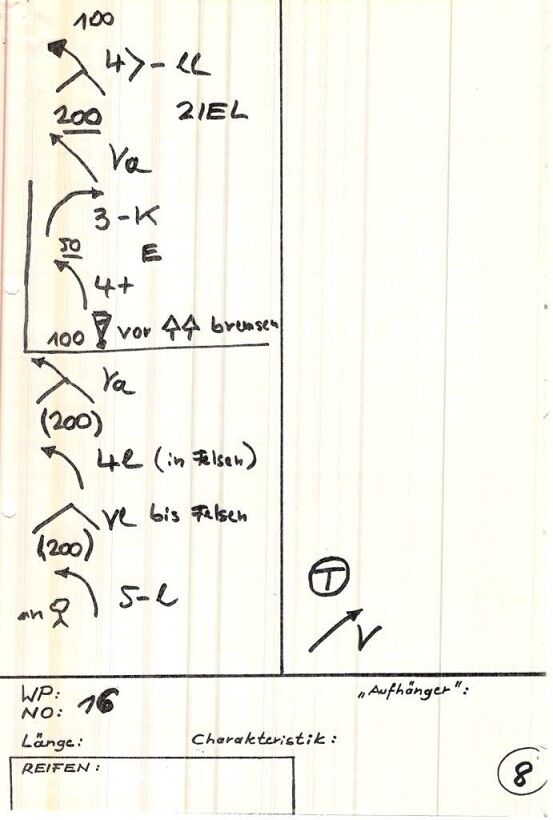 100
4>-ll
200 ZIEL
Va
3-K
50 E
4+
100 ! vor bremsen
Va
(200)
4l (in Felsen)
Vl bis Felsen
(200)
5-l
T
V
WP: 16
NO:
„Aufhänger":
Länge: Charakteristik:
REIFEN:
8